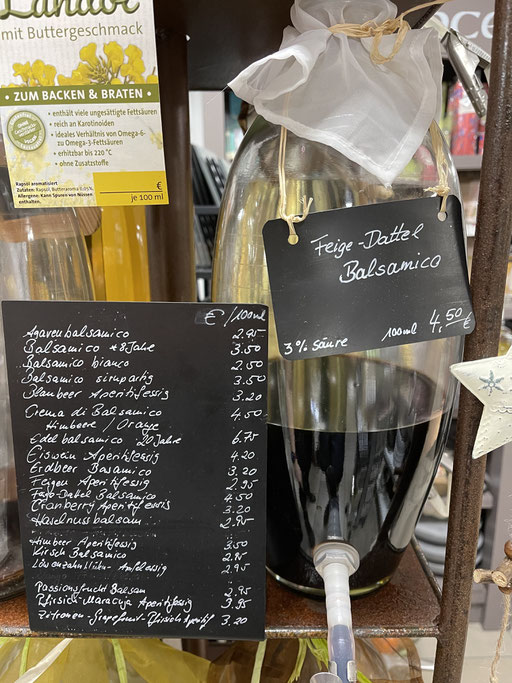 Landöl
mit Buttergeschmack
• ZUM BACKEN & BRATEN •
• enthält viele ungesättigte Fettsäuren
• reich an Karotinoiden
• ideales Verhältnis von Omega-6- zu Omega-3-Fettsäuren
• erhitzbar bis 220 °C
• ohne Zusatzstoffe
Rapsöl aromatisiert
Zutaten: Rapsöl, Butteraroma 0,05%.
Allergene: Kann Spuren von Nüssen
enthalten.
€
je 100 ml
Feige-Dattel
Balsamico
3% säure 100ml 4,50 €
€/100ml
Agavenbalsamico 2.95
Balsamico *8 Jahre 3.50
Balsamico bianco 2.50
Balsamico sirupartig 3.50
Blaubeer Aperitifessig 3.20
Crema di Balsamico 4.50
Himbeere / Orange
Edel balsamico 20 Jahre 6.75
Eiswein Aperitifessig 4.20
Erdbeer Basamico 3.20
Feigen Aperitifessig 2.95
Feige-Dattel Balsamico 4.50
Cranberry Aperitifessig 3.20
Haselnussbalsam 2.95
Himbeer Aperitifessig 3.50
Kirsch Balsamico 2.95
Löwenzahnblüten-Apfelessig 2.95
Passionsfrucht Balsam 2.95
Pfirsich-Maracuja Aperitifessig 3.95
Zitronen-Grapefruit-Pfirsich Aperitif 3.20